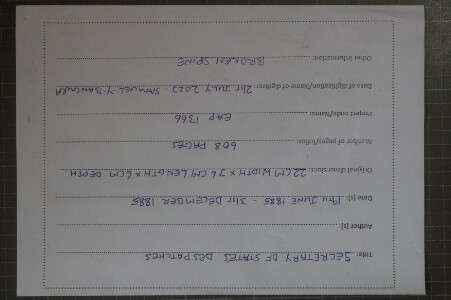 Title: SECRETARY OF STATES DESPATCHES
Author [s]:
Date [s]: 19TH JUNE 1885 - 31ST DECEMBER 1885
Original dimensions: 22CM WIDTH × 36 CM LENGTH × 6CM DEPTH
Number of pages/folios: 608 PAGES
Project code/Name: EAP 1366
Data of digitization/Name of digitizer: 21ST JULY 2022 SAMUEL Y.
Other information: BROKEN SPINE